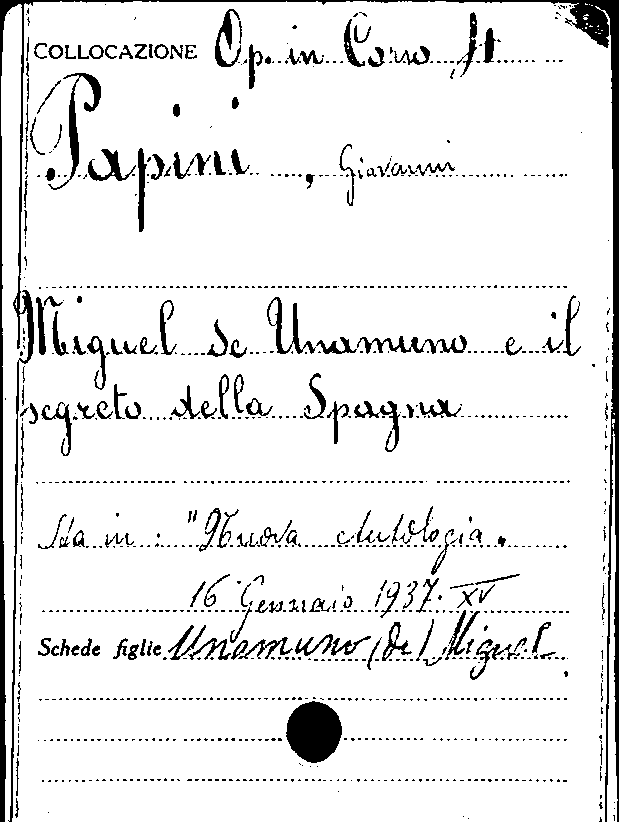 COLLOCAZIONE Op. in Corso It
Papini, Giovanni
Miguel de Unamuno e il
segreto della Spagna
Sta in: "Nuova Antologia.
16 Gennaio 1937. XV
Schede figlie Unamuno (de) Miguel.